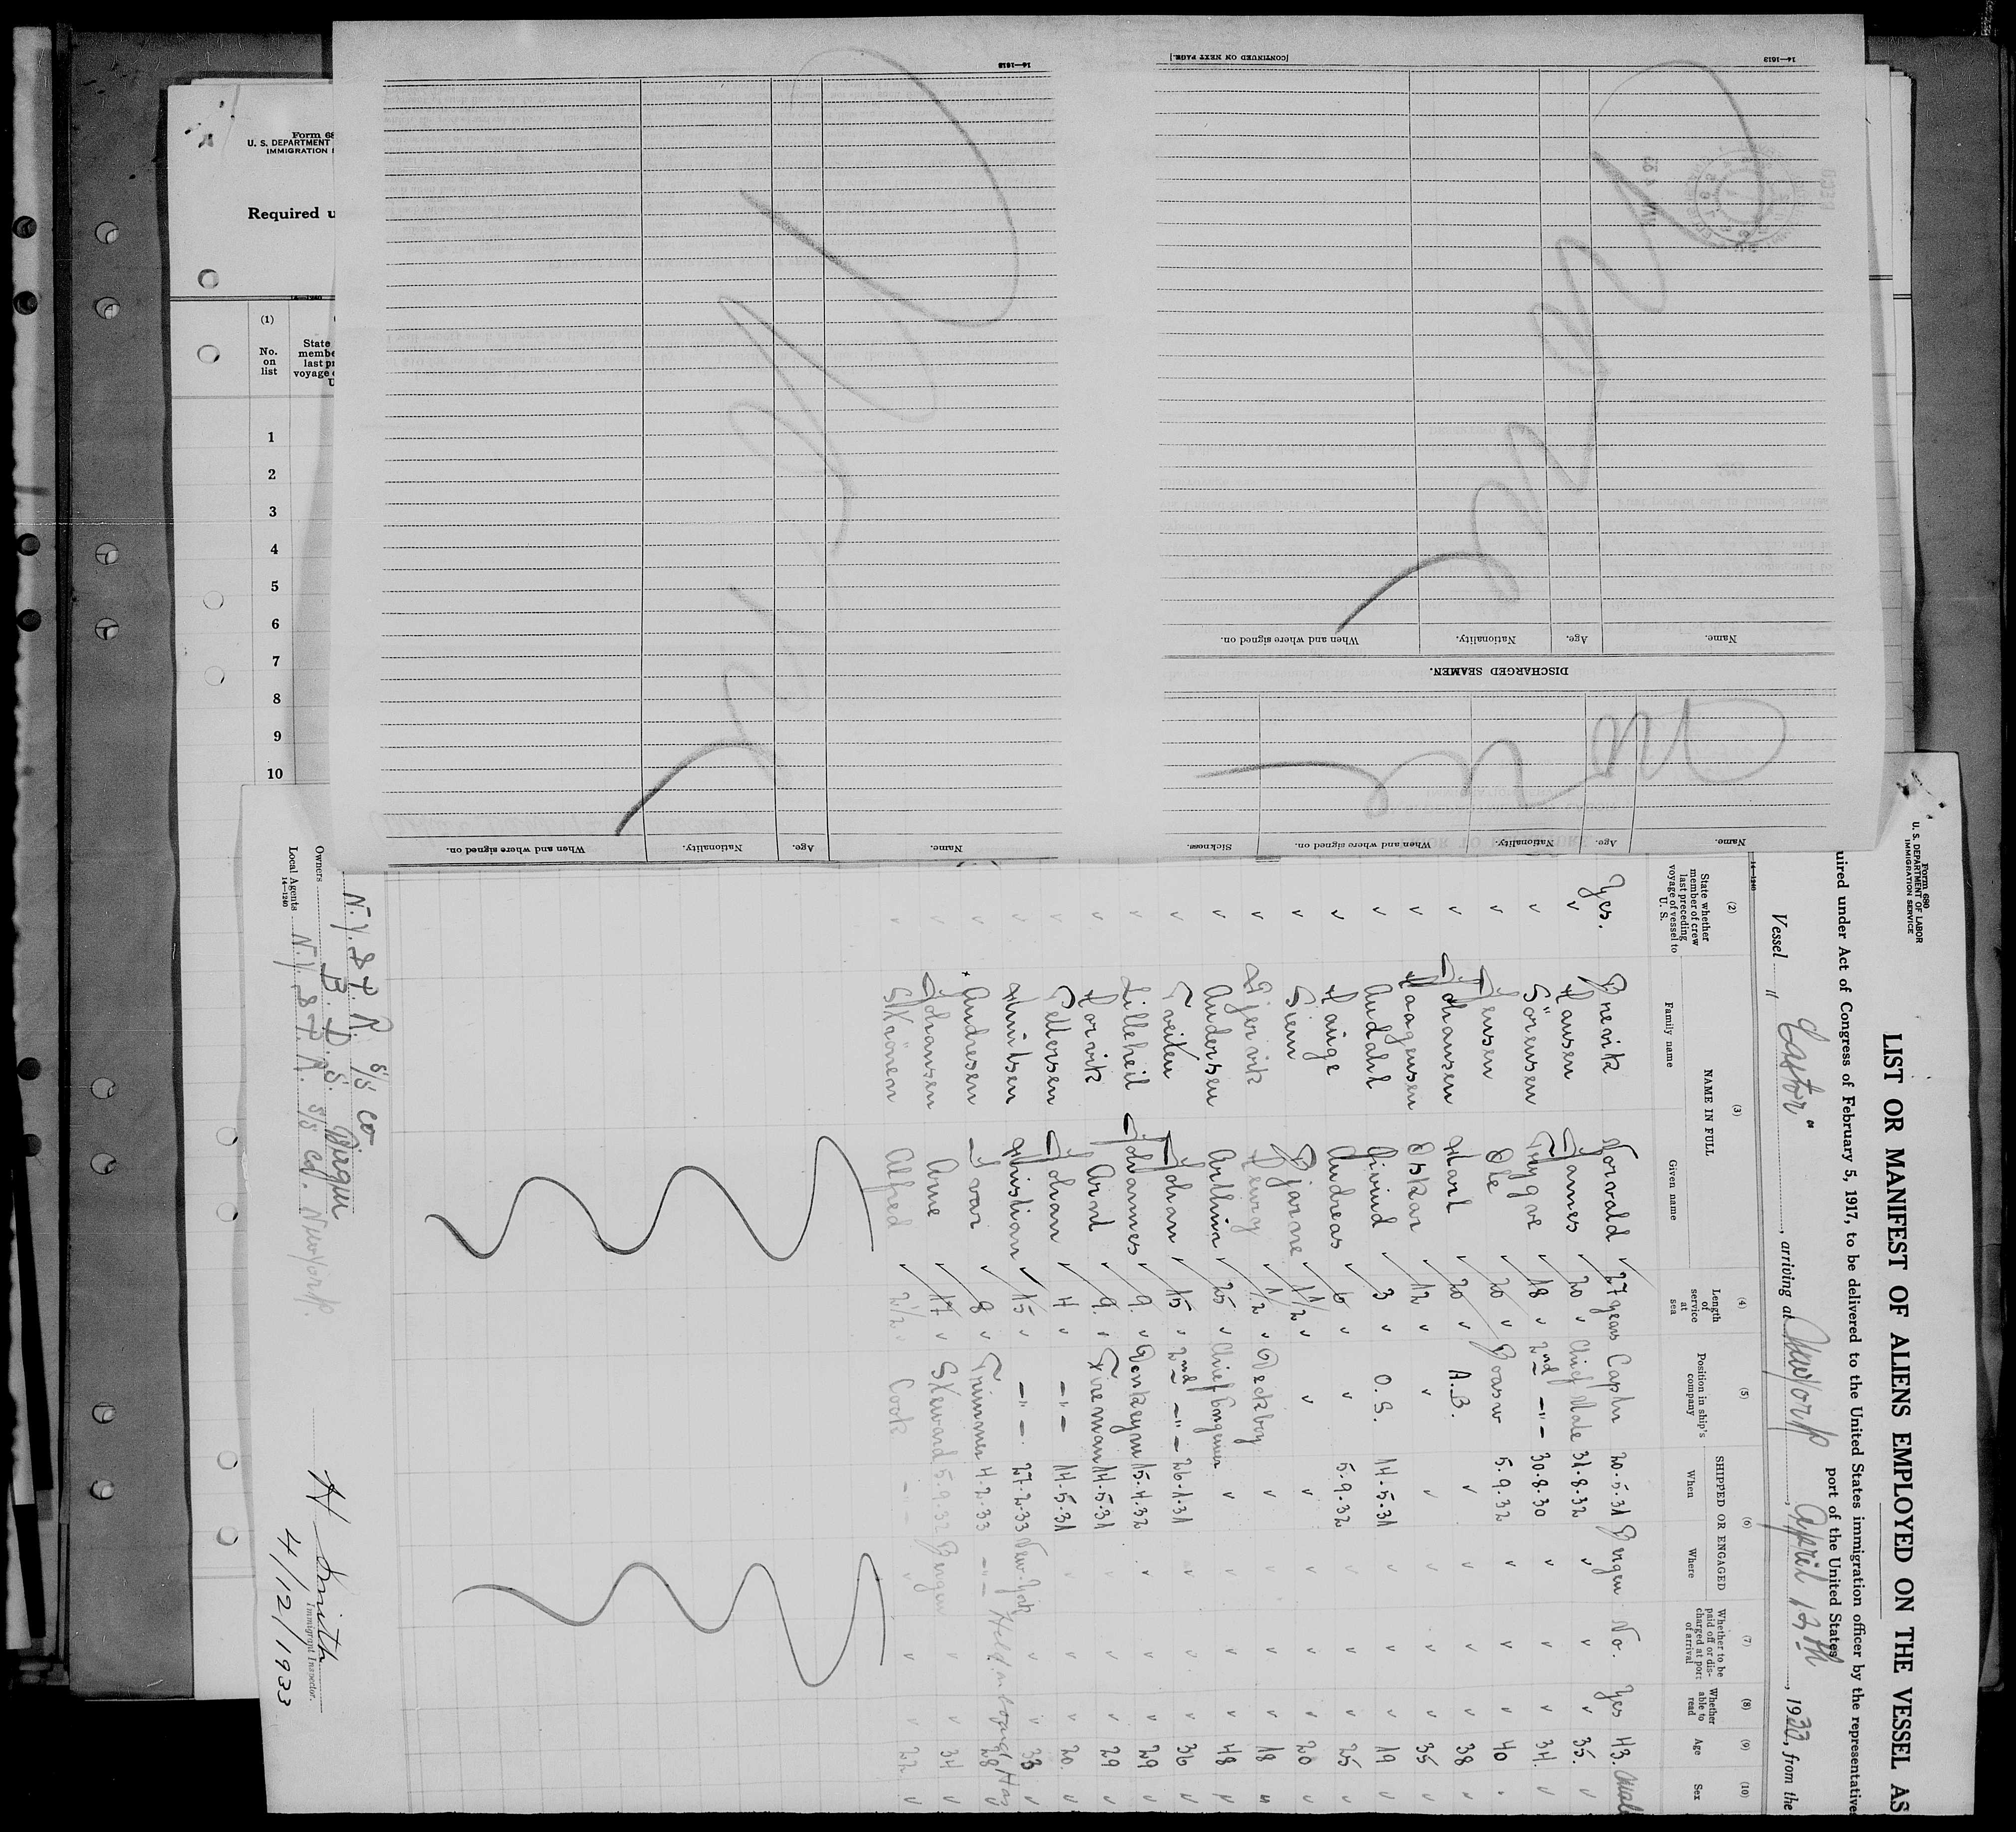 Form 68
U. S. DEPARTMENT
IMMIGRATION
Required u
(1)
No.
on
list
State
membe
last pr
voyage
U
1
2
3
4
5
6
7
8
9
10
14—1613
[CONTINUED ON NEXT PAGE.]
14—1613
Name.
Age.
Nationality.
When and where signed on.
DISCHARGED SEAMEN.
Name.
Age.
Nationality.
When and where signed on.
Sickness.
Name.
Age.
Nationality.
When and where signed on.
Form 680
U. S. DEPARTMENT OF LABOR
IMMIGRATION SERVICE
LIST OR MANIFEST OF ALIENS EMPLOYED ON THE VESSEL AS
uired under Act of Congress of February 5, 1917, to be delivered to the United States immigration officer by the representatives
port of the United States
Vessel " Castor " , arriving at New York , April 12th , 1933, from the
14—1240
(2) (3) (4) (5) (6) (7) (8) (9) (10)
State whether member of crew last preceding voyage of vessel to U. S.
NAME IN FULL
Family name Given name
Length of service at sea
Position in ship's company
SHIPPED OR ENGAGED
When Where
Whether to be paid off or discharged at port of arrival
Whether able to read
Age
Sex
Yes. Brevik Norvald 27 years Captn 20.5.31 Bergen No. Yes 43. Male
Hansen James 20 Chief Mate 31.8.32 35.
Sörensen Trygve 18 2nd -"- 30.8.30 34.
Jensen Ole 20 Boasw 5.9.32 40
Johansen Karl 20 A.B. 38
Haagensen Oskar 12 35
Auddahl Eivind 3 O.S. 14.5.31 19
Hauge Andreas 6 5.9.32 25
Siem Bjarne 1 1/2 20
Gjervik Henry 1/2 Deckboy 18
Andersen Arthur 25 Chief Engineer 48
Tveiten Johan 15 2nd -"- 26.1.31 36
Lilleheil Johannes 9 Donkeym 15.4.32 29
Horvik Arnt 9 Fireman 14.5.31 29
Pettersen Johan 4 -"- 14.5.31 20.
Knutsen Kristian 15 -"- 27.2.33 New-York 33
Andresen Ivar 8 Trimmer 4.2.33 -"- 28
Johansen Arne 17 Steward 5.9.32 Bergen 34
Skrönen Alfred 2 1/2 Cook -"- 22
N. Y. & P. R. S/S Co
Owners B. D. S. Bergen
Local Agents N. Y. & P. R. S/S Co. New York.
14—1240
H Smith
Immigrant Inspector.
4/12/1933